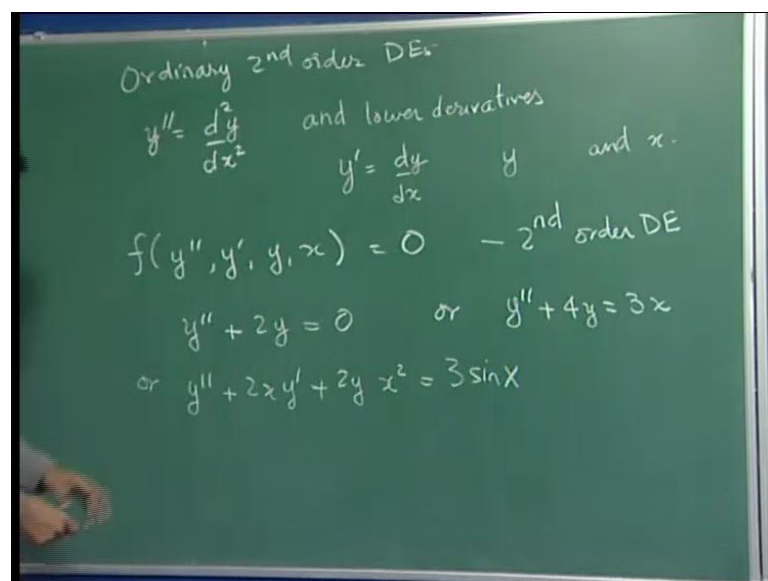 Ordinary 2nd order DEs
y'' = d²y/dx² and lower derivatives
y' = dy/dx y and x.
f(y'', y', y, x) = 0 – 2nd order DE
y'' + 2y = 0 or y'' + 4y = 3x
or y'' + 2xy' + 2y x² = 3 sin x